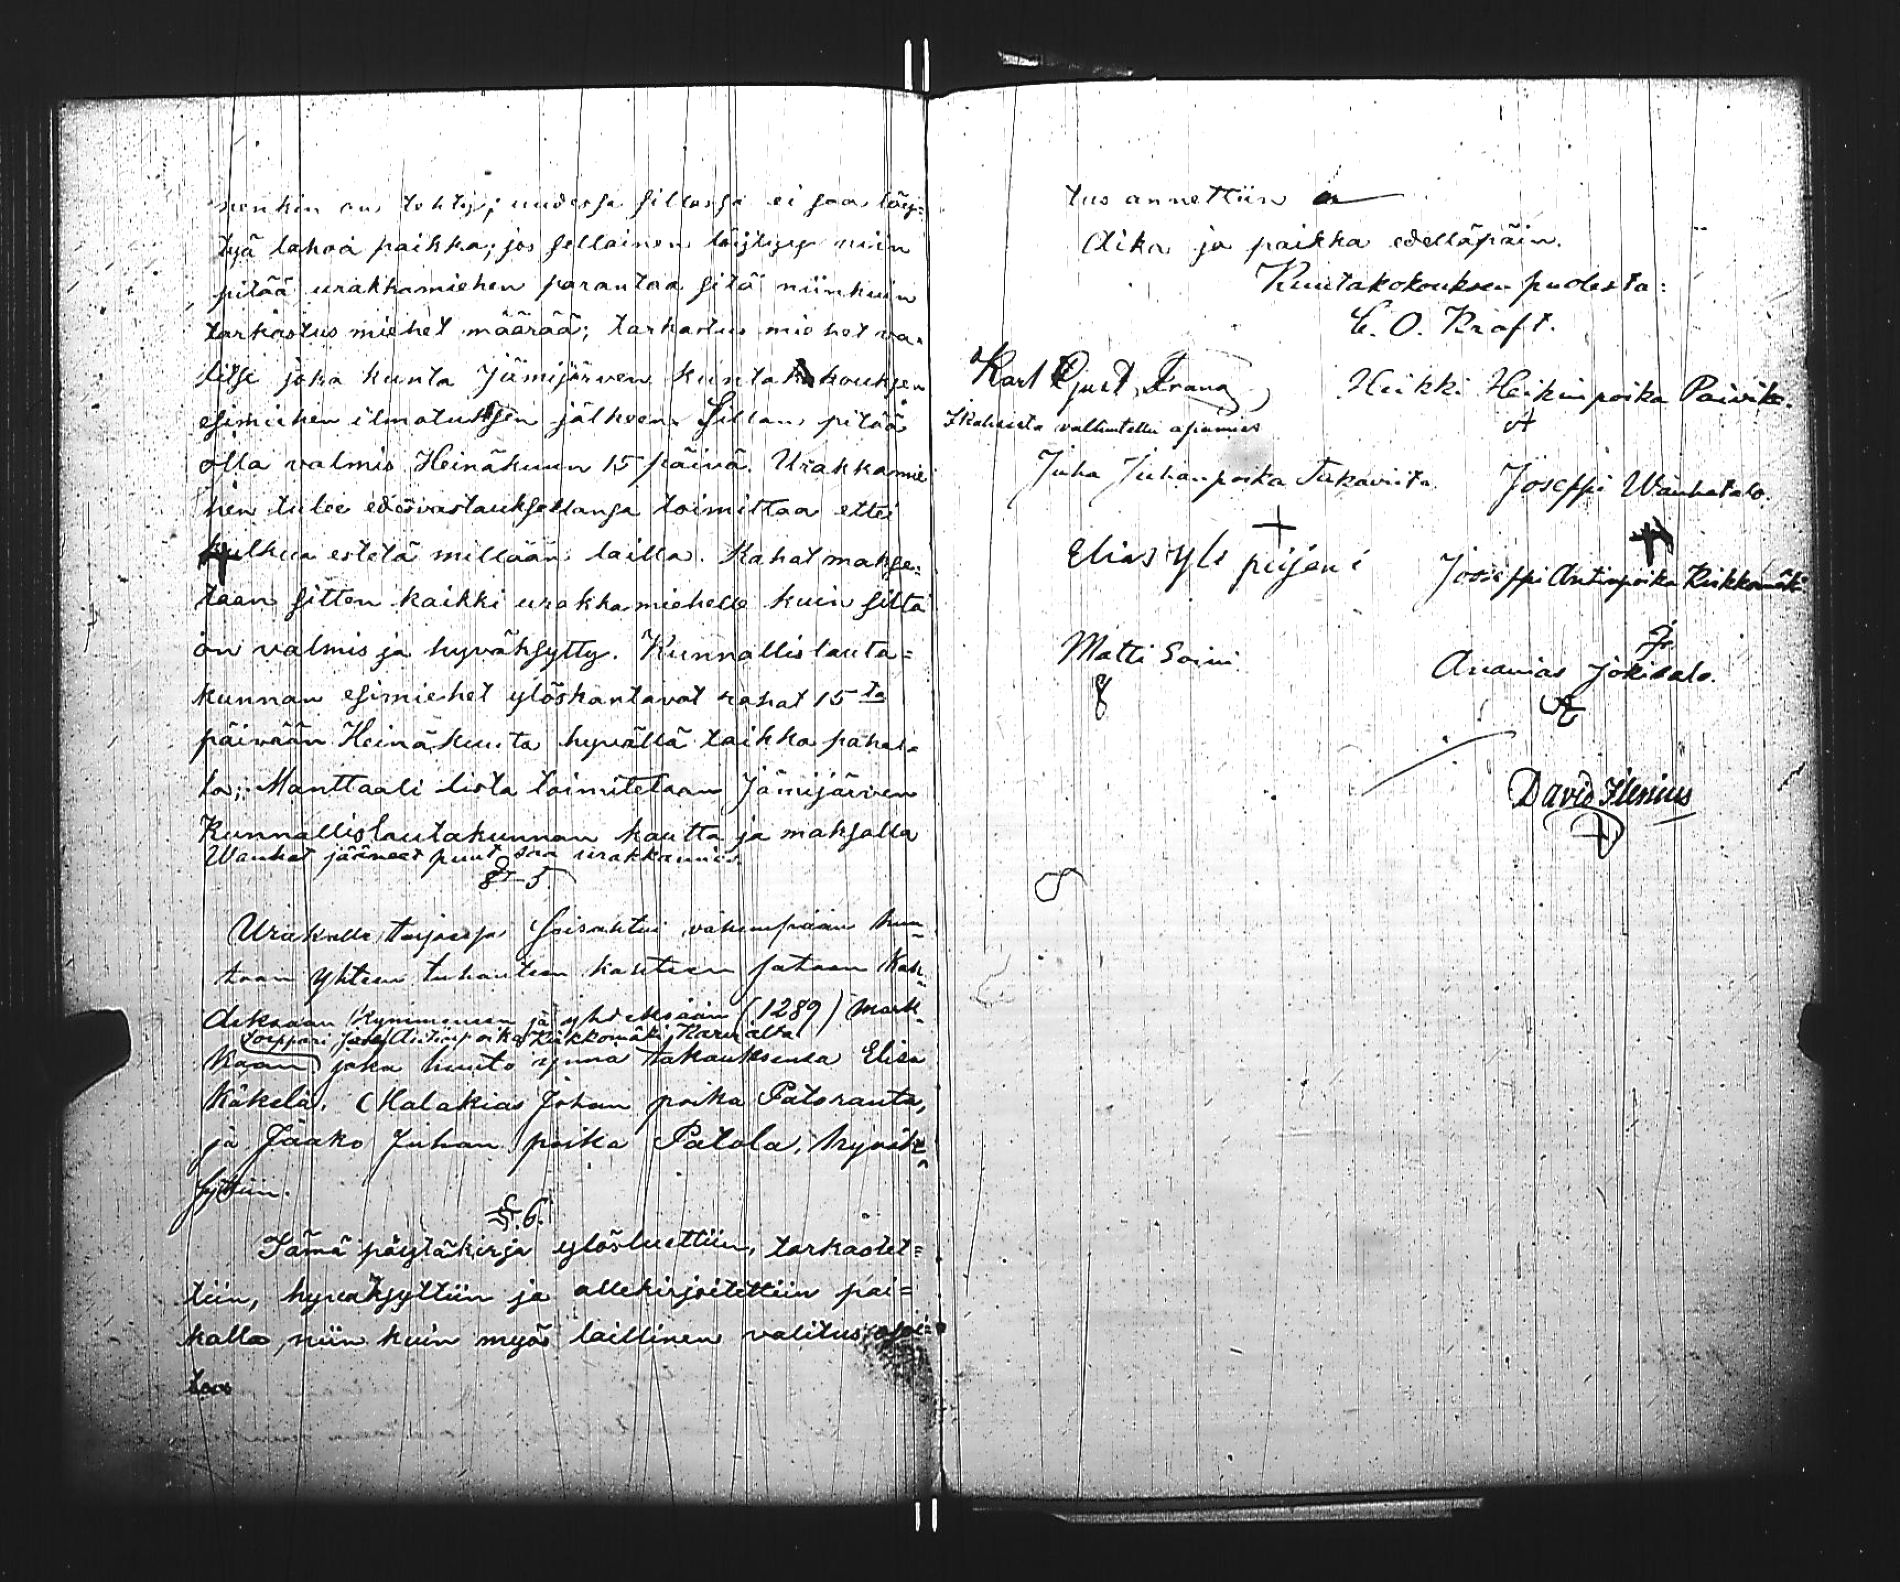 nenkin on tehty; uudessa sillassa ei saa löy=
tyä lahoa paikka; jos sellainen löytyy niin
pitää urakkamiehen parantaa sitä niinkuin
tarkastus miehet määrää; tarkastus miehet va=
litse joka kunta Jämijärven kuntakokouksen
esimiehen ilmotuksen jälkeen. Sillan pitää
olla valmis Heinäkuun 15 päivä. Urakkamie
hen tulee edesvastauksellansa toimittaa ettei
kulkua estetä millään lailla. Rahat makse=
taan sitten kaikki urakkamiehelle kuin silta
on valmis ja hyväksytty. Kunnallislauta=
kunnan esimiehet ylöskantavat rahat 15ta
päivään Heinäkuuta hyvällä taikka pahal=
la; Manttaali lista toimitetaan Jämijärven
Kunnallislautakunnan kautta ja maksalla
Wanhat jääneet puut saa urakkamies.
§ 5.
Urakalle tarjoessa seisahtui vähimpään huu=
toon Yhteen tuhanteen kahteen sataan Kah=
deksaan Kymmeneen ja yhdeksään (1289) Mark=
Antinpoika Kiikkomäki Karvialta
kaan joka huuto ynnä takauksensa Elisa
Käkelä. Malakias Johan poika Patoranta,
ja Jaako Juhan poika Patola, hyväk=
syttiin.
§. 6.
Tämä pöytäkirja ylösluettiin, tarkastet=
tiin, hyväksyttiin ja allekirjoitettiin pai=
kalla, niin kuin myös laillinen valitus osoi=
tus annettiin
Aika ja paikka edelläpäin.
Kuntakokouksen puolesta:
E. O. Kraft.
Karl Gust Frang
Ikalisista valtuutettu asiamies
Heikki Heikinpoika Päivike.
Juha Juhanpoika Takaviita
Joseppi Wanhatalo.
Elias Yli piijani
Jooseppi Antinpoika Kiikkomäki
Matti Soini
Ananias Jokisalo.
David Ilenius